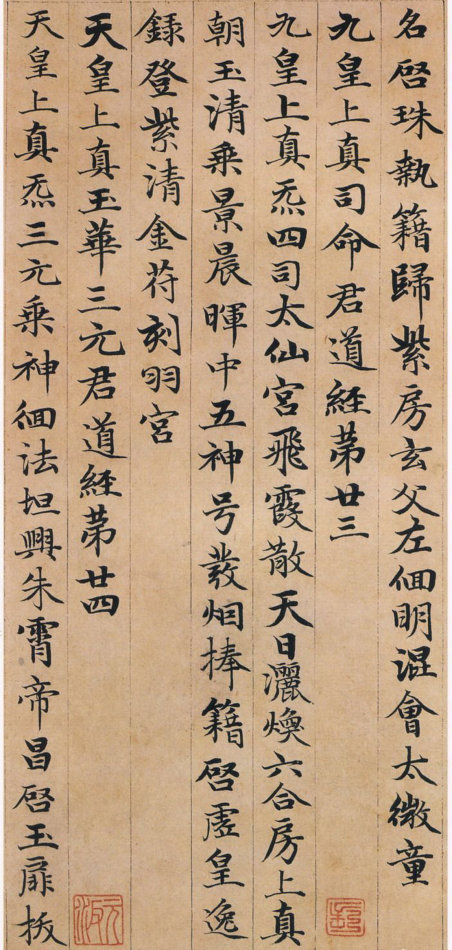 名啓珠執籍歸紫房玄父左佪明混會太微童
九皇上真司命君道經苐廿三
九皇上真炁四司太仙宮飛霞散天日灑煥六合房上真
朝玉清乗景晨暉中五神号裝烟捧籍啓虛皇逸
録登紫清金苻刻羽宮
天皇上真玉華三元君道經苐廿四
天皇上真炁三元乗神佪法坦興朱霄帝昌啓玉扉披